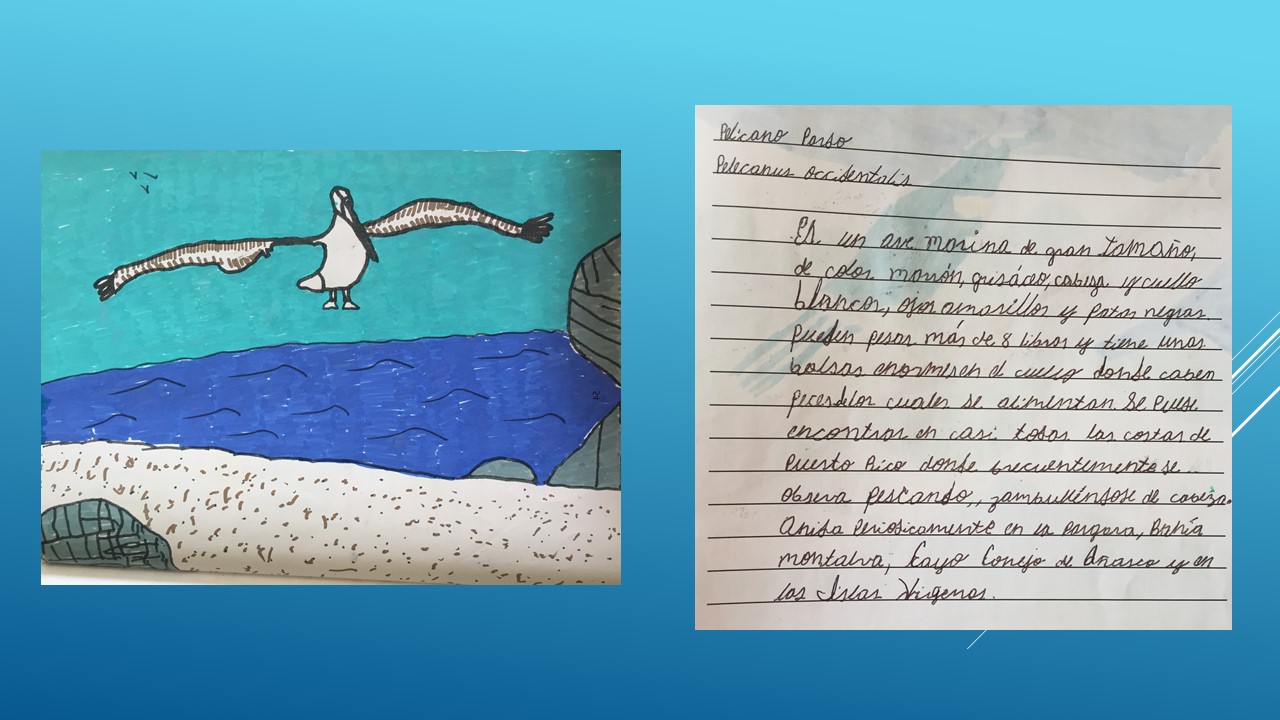 Pelícano Pardo
Pelecanus occidentalis
Es un ave marina de gran tamaño,
de color marrón, grisáceo, cabeza y cuello
blancos, ojos amarillos y patas negras.
Pueden pesar más de 8 libras y tiene unas
bolsas enormes en el cuello donde caben
peces de los cuales se alimentan. Se puede
encontrar en casi todas las costas de
Puerto Rico donde frecuentemente se
observa pescando, zambulléndose de cabeza.
Anida Periodicamente en la Parguera, Bahía
montalva, Cayo Conejo de Añasco y en
las Islas Vírgenes.